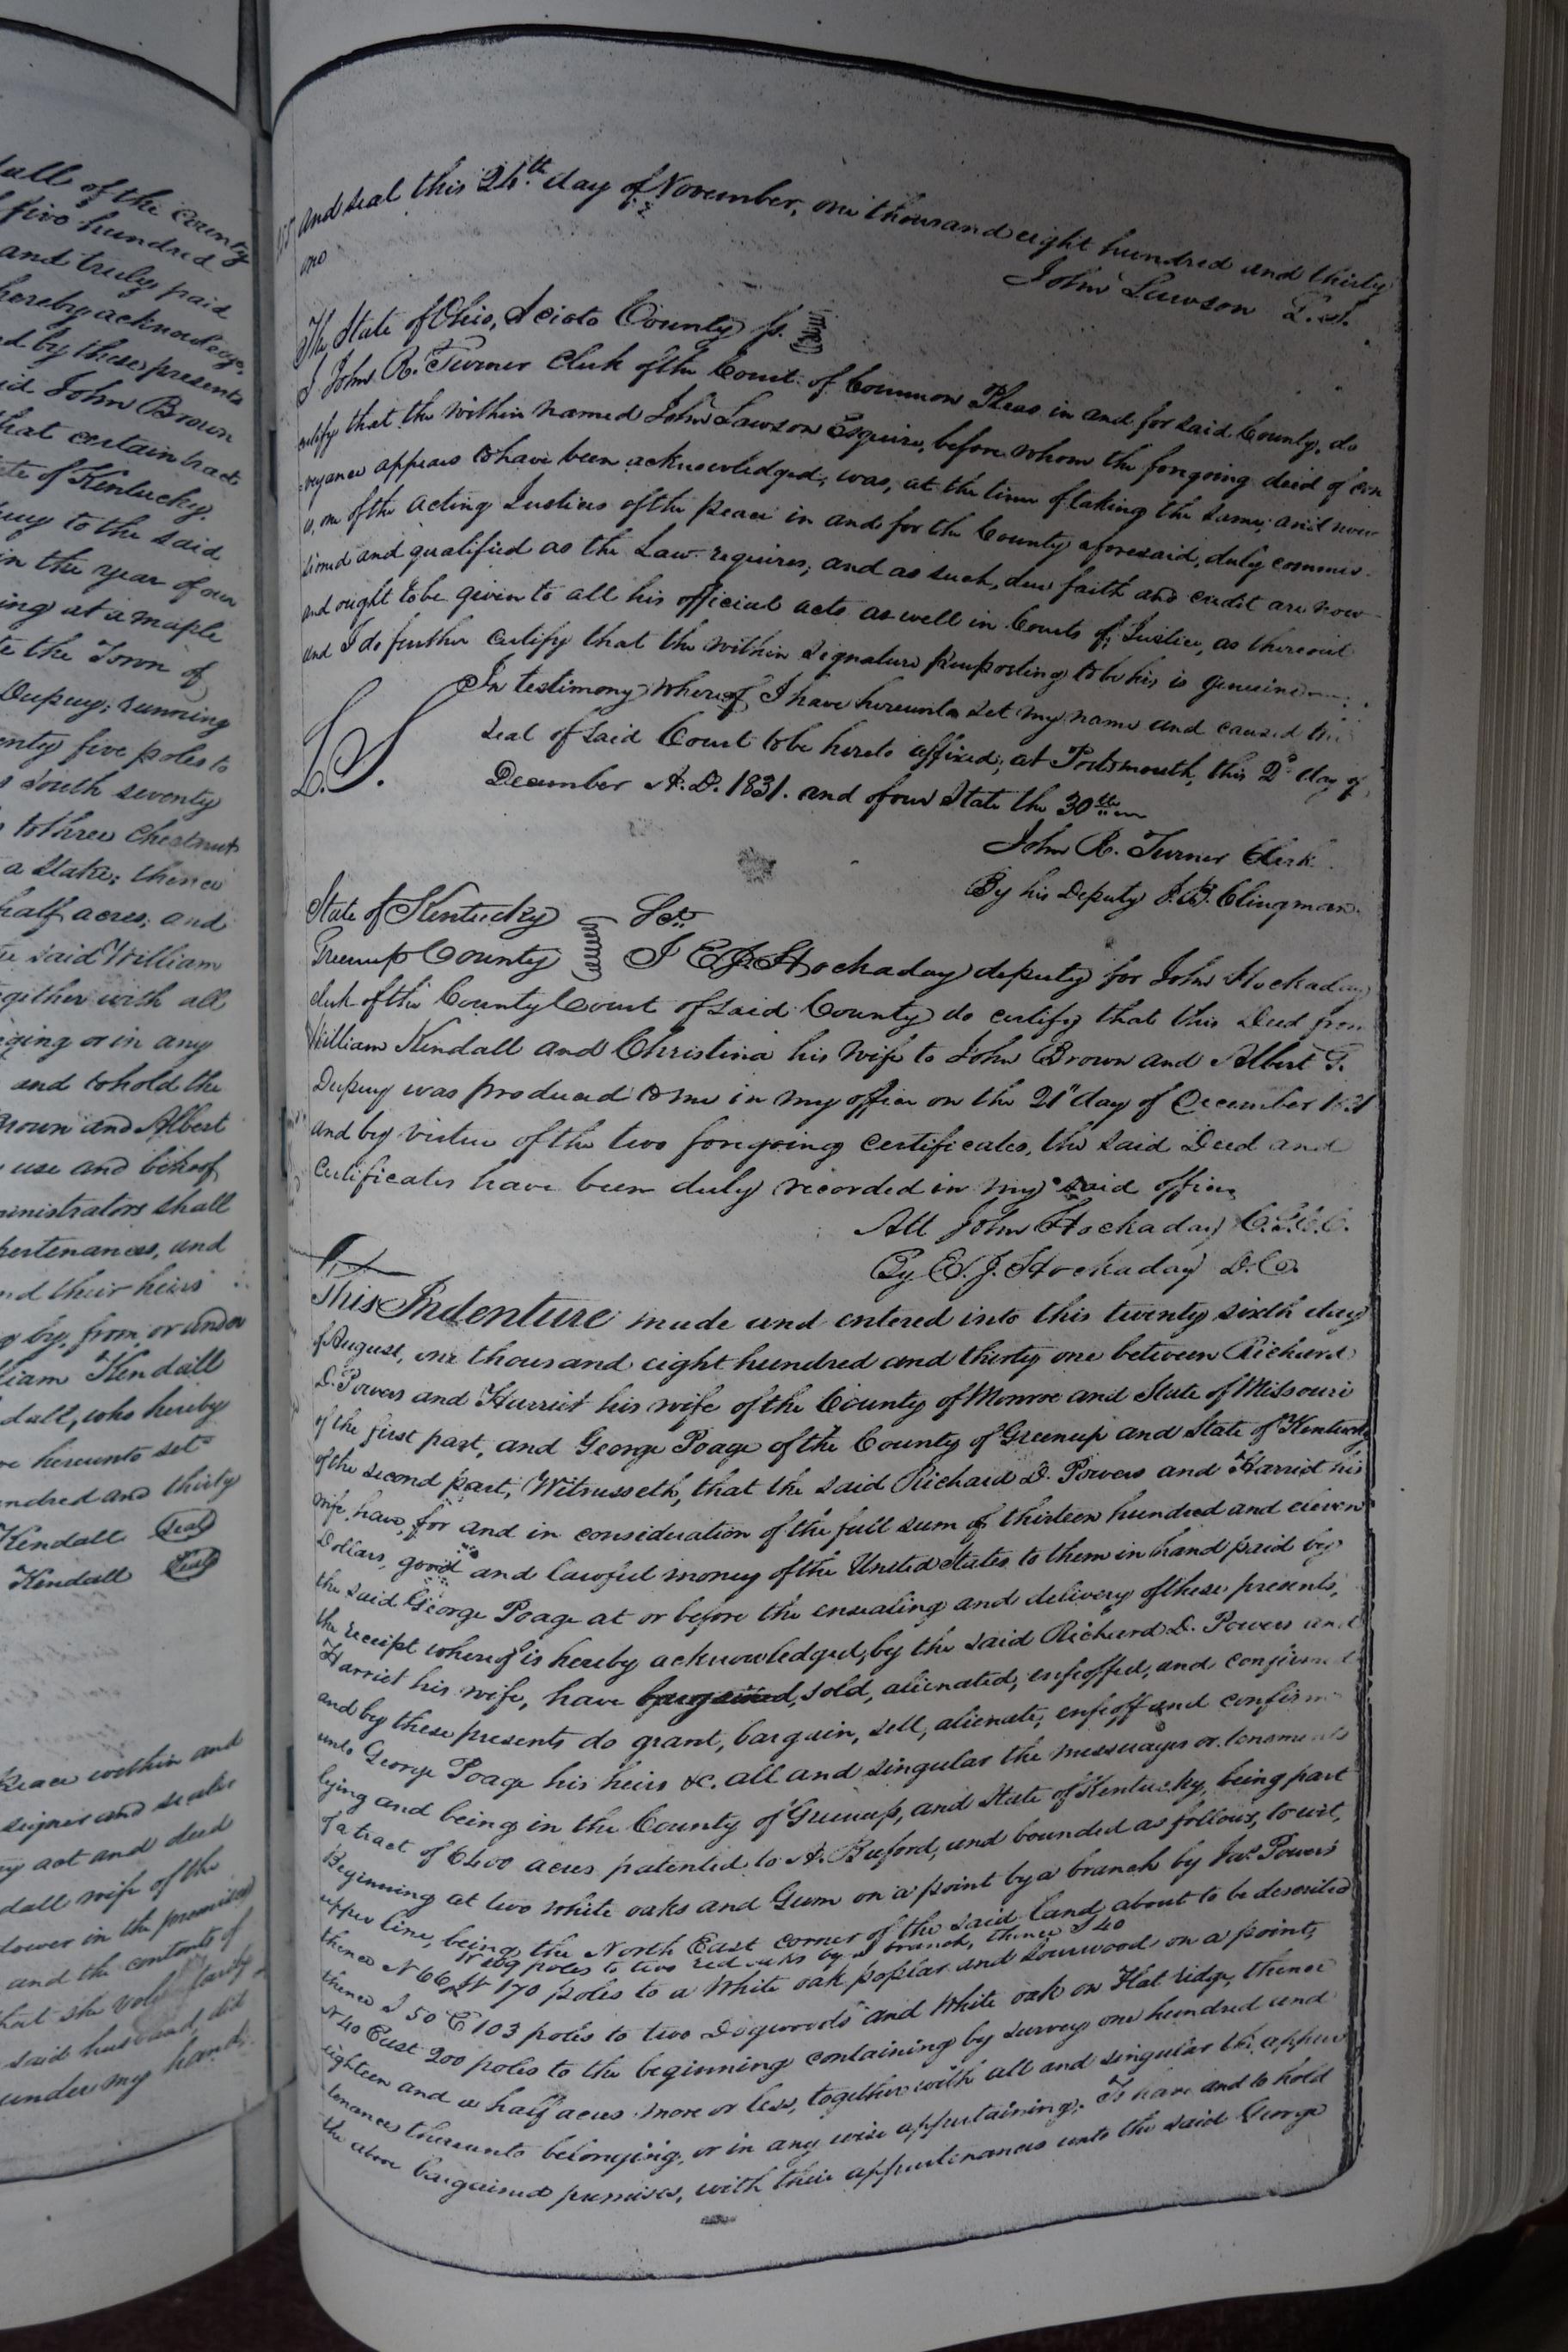 all of the County
five hundred
and truly paid
hereby acknowledge,
d by these presents
id John Brown
hat certain tract
te of Kentucky.
puy to the said
in the year of our
ing at a maple
te the Town of
Dupuy; running
enty five poles to
s South seventy
to three Chestnut
a Stake; thence
half acres; and
e said William
gether with all
ging or in any
and to hold the
rown and Albert
use and behoof
ministrators shall
pertenances, and
nd their heirs
g by, from or under
liam Kendall
dall, who hereby
ve hereunto set
undred and thirty
Kendall Seal
Kendall Seal
Peace within and
signer and sealer
ry act and deed
dall wife of the
dower in the premises
and the contents of
hat she voluntarily
said husband, did
under my hand
and seal this 24th day of November, one thousand eight hundred and thirty
one
John Lawson L.S.
The State of Ohio, Scioto County ss.
I John R. Turner Clerk of the Court of Common Pleas in and for said County, do
certify that the within named John Lawson Esquire, before whom the foregoing deed of con
-veyance appears to have been acknowledged, was, at the time of taking the same, and now
is, one of the acting Justices of the peace in and for the County aforesaid, duly commis-
sioned and qualified as the Law requires, and as such, due faith and credit are now
and ought to be given to all his official acts as well in Courts of Justice, as thereout
and I do further certify that the within signature purporting to be his is genuine
In testimony whereof I have hereunto set my name and caused the
L.S. seal of said Court to be hereto affixed, at Portsmouth, this 2d day of
December A.D. 1831. and of our State the 30th
John R. Turner Clerk
By his Deputy J. B. Clingman.
State of Kentucky Sct.
Greenup County I E. J. Hockaday deputy for John Hockaday
clerk of the County Court of said County do certify that this Deed from
William Kendall and Christina his wife to John Brown and Albert G.
Dupuy was produced to me in my office on the 21" day of December 1831
and by virtue of the two foregoing certificates, the said Deed and
Certificates have been duly recorded in my said office
Att John Hockaday C.G.C.C.
By E. J. Hockaday D.C.
This Indenture made and entered into this twenty sixth day
of August, one thousand eight hundred and thirty one between Richard
D. Powers and Harriet his wife of the County of Monroe and State of Missouri
of the first part, and George Poage of the County of Greenup and State of Kentucky
of the second part, Witnesseth, that the said Richard D. Powers and Harriet his
wife, have, for and in consideration of the full sum of thirteen hundred and eleven
Dollars, good and lawful money of the United States to them in hand paid by
the said George Poage at or before the ensealing and delivery of these presents,
the receipt whereof is hereby acknowledged, by the said Richard D. Powers and
Harriet his wife, have bargained, sold, alienated, enfeoffed, and confirmed
and by these presents do grant, bargain, sell, alienate, enfeoff and confirm
unto George Poage his heirs &c. all and singular the messuages or tenements
lying and being in the County of Greenup, and State of Kentucky, being part
of a tract of 6400 acres patented to A. Buford, and bounded as follows, to wit,
Beginning at two white oaks and Gum on a point by a branch by Jas. Powers
upper line, being the North East corner of the said land about to be described
W 209 poles to two red oaks by a branch, thence S 40
thence N 66 W 170 poles to a White oak poplar and sourwood on a point,
thence S 50 E 103 poles to two Dogwoods and White oak on Flat ridge, thence
N 40 East 200 poles to the beginning containing by survey one hundred and
eighteen and a half acres more or less, together with all and singular the appur
tenances thereunto belonging, or in any wise appertaining; To have and to hold
the above bargained premises, with their appurtenances unto the said George